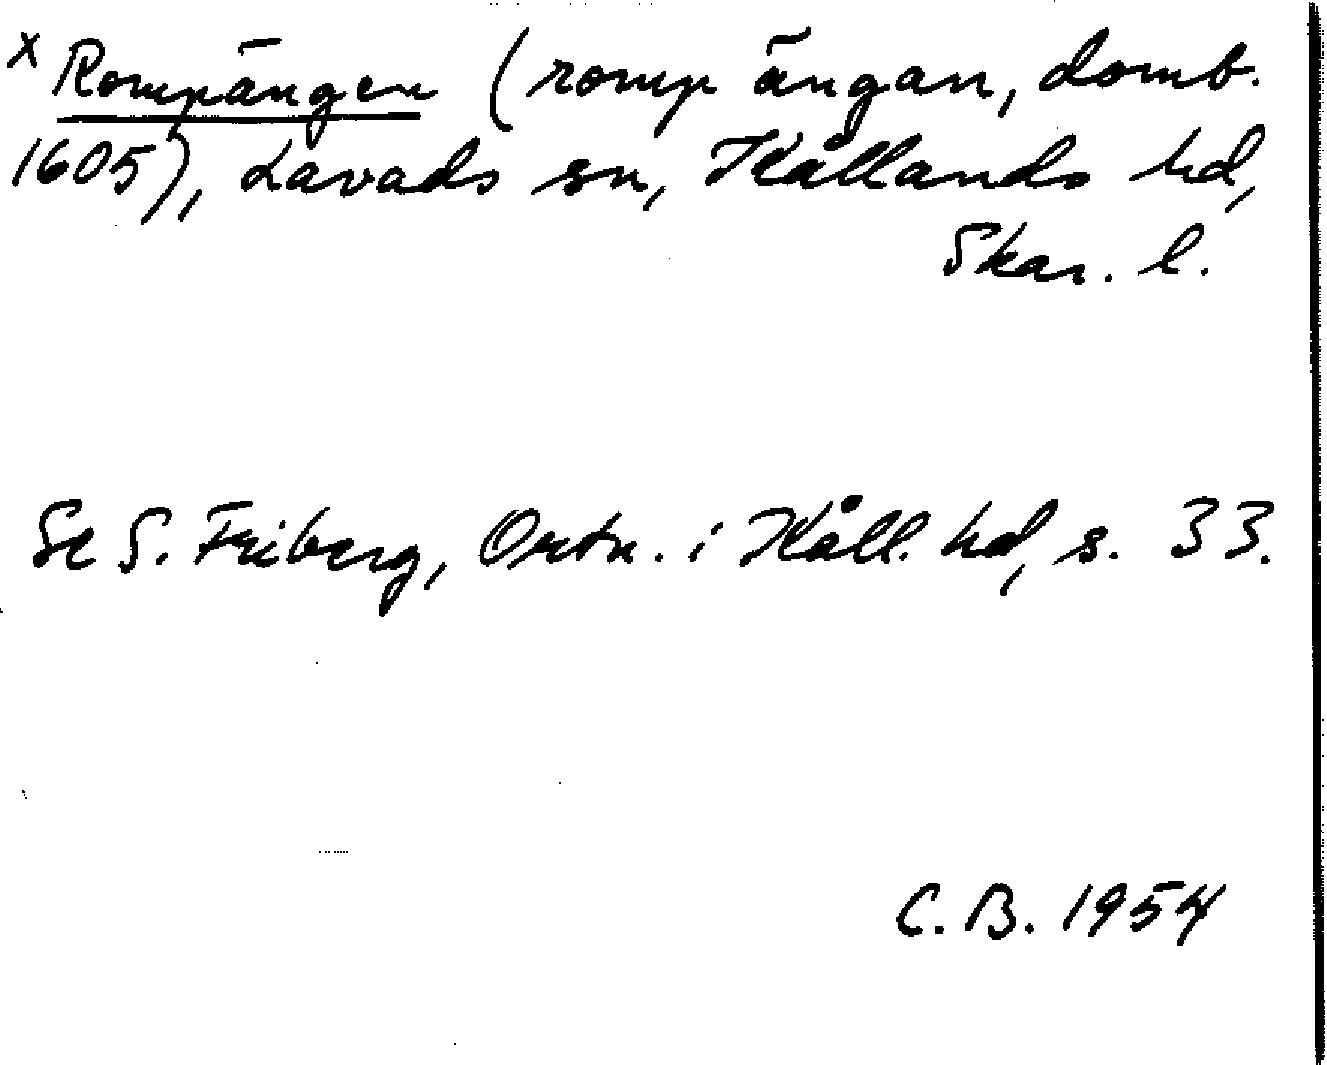 x Rompängen (romp ängan, domb.
1605), Lavads sn, Kållands hd,
Skar. l.
Se S. Friberg, Ortn. i Kåll. hd, s. 33.
C. B. 1954